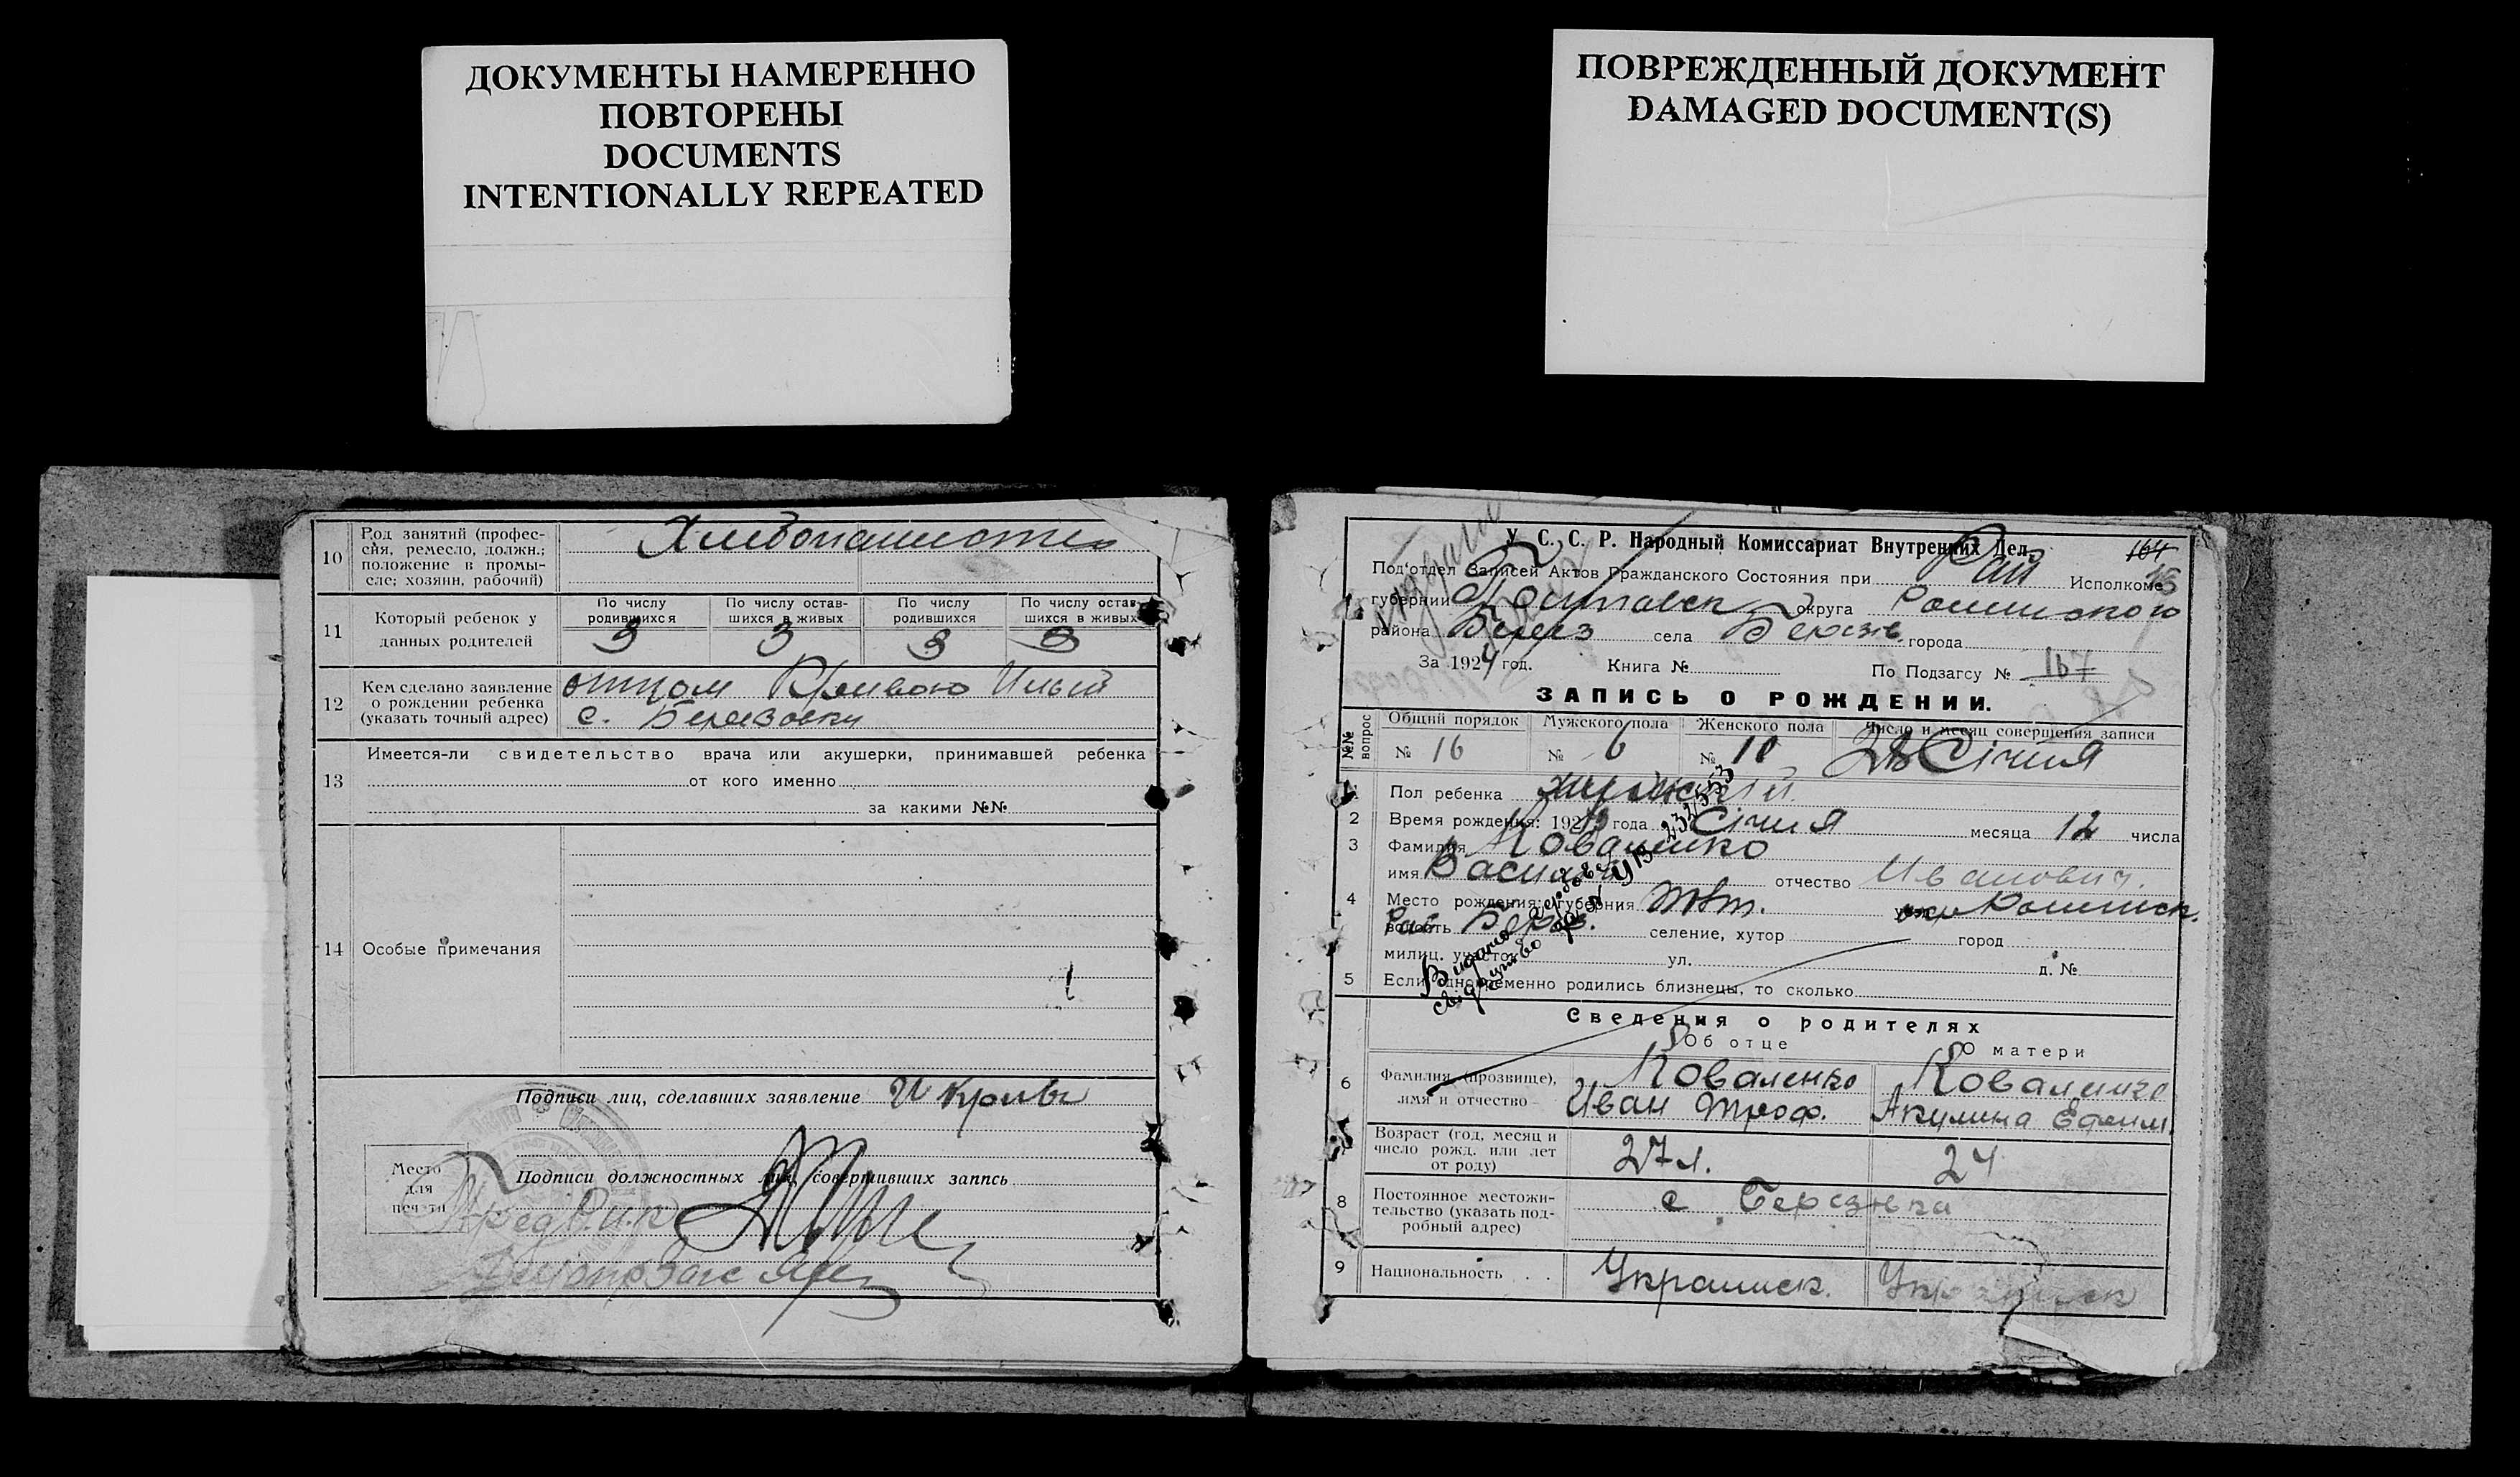 ДОКУМЕНТЫ НАМЕРЕННО
ПОВТОРЕНЫ
DOCUMENTS
INTENTIONALLY REPEATED
ПОВРЕЖДЕННЫЙ ДОКУМЕНТ
DAMAGED DOCUMENT(S)
10 Род занятий (профес-
сия, ремесло, должн.;
положение в промы-
сле; хозяин, рабочий)
11 Который ребенок у
данных родителей
По числу
родившихся
По числу остав-
шихся в живых
По числу
родившихся
По числу остав-
шихся в живых
3 3 3 3
12 Кем сделано заявление
о рождении ребенка
(указать точный адрес)
отцом Кривою Ильей
с. Березовки
13 Имеется-ли свидетельство врача или акушерки, принимавшей ребенка
от кого именно
за какими №№
14 Особые примечания
Подписи лиц, сделавших заявление И Кривы
Место
для
печати
Подписи должностных лиц, совершивших запись
У. С. С. Р. Народный Комиссариат Внутренних Дел.
164
Под'отдел Записей Актов Гражданского Состояния при Рай Исполкоме
губернии Полтавск округа Роменского
района Берез села города
За 1924 год. Книга № По Подзагсу № 167
ЗАПИСЬ О РОЖДЕНИИ.
№№ вопрос
Общий порядок Мужского пола Женского пола Число и месяц совершения записи
№ 16 № 6 № 10 Січня
1 Пол ребенка
2 Время рождения: 192 года Січня месяца 12 числа
3 Фамилия Коваленко
имя Василий отчество Иванович.
4 Место рождения: губерния уезд Роменск.
волость селение, хутор город
милиц. участок ул. д. №
5 Если одновременно родились близнецы, то сколько
Видано
свідоцтво
Сведения о родителях
Об отце О матери
6 Фамилия (прозвище),
имя и отчество
Коваленко
Иван Троф.
Коваленко
Акулина Ефим.
7 Возраст (год, месяц и
число рожд. или лет
от роду)
27 л. 24
8 Постоянное местожи-
тельство (указать под-
робный адрес)
с Березівка
9 Национальность . . Украинск. Украинск